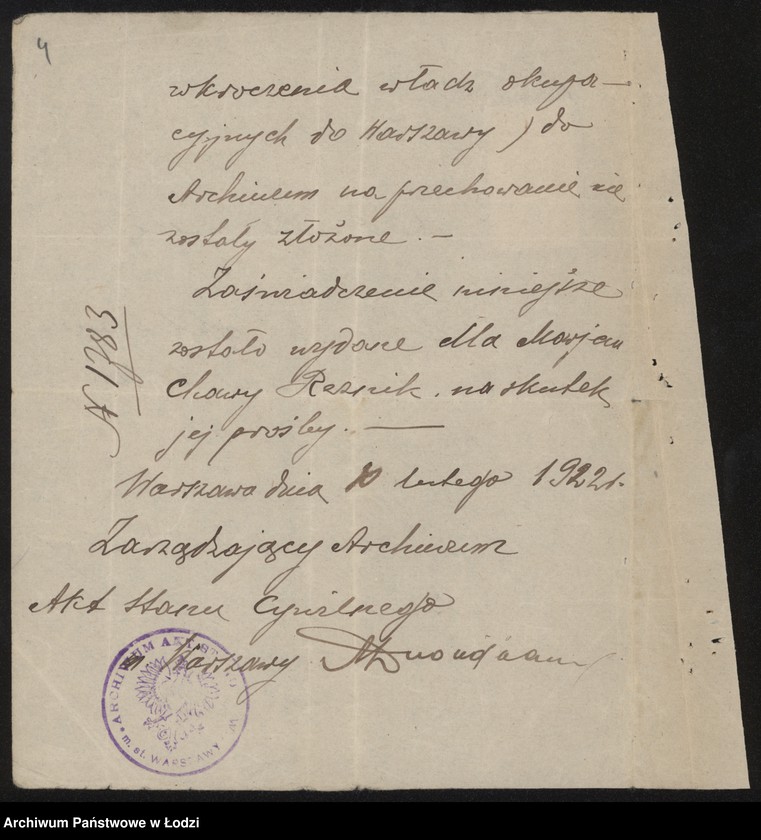 4
wkroczenia władz okupa—
cyjnych do Warszawy) do
Archiwum na przechowanie nie
zostały złożone. —
Zaświadczenie niniejsze
zostało wydane dla Marjan
Chawy Reznik. na skutek
jej prośby. —
N 1783
Warszawa dnia 10 lutego 1922 r.
Zarządzający Archiwum
Akt Stanu Cywilnego
m Warszawy
ARCHIWUM AKT
m. st. WARSZAWY
Archiwum Państwowe w Łodzi